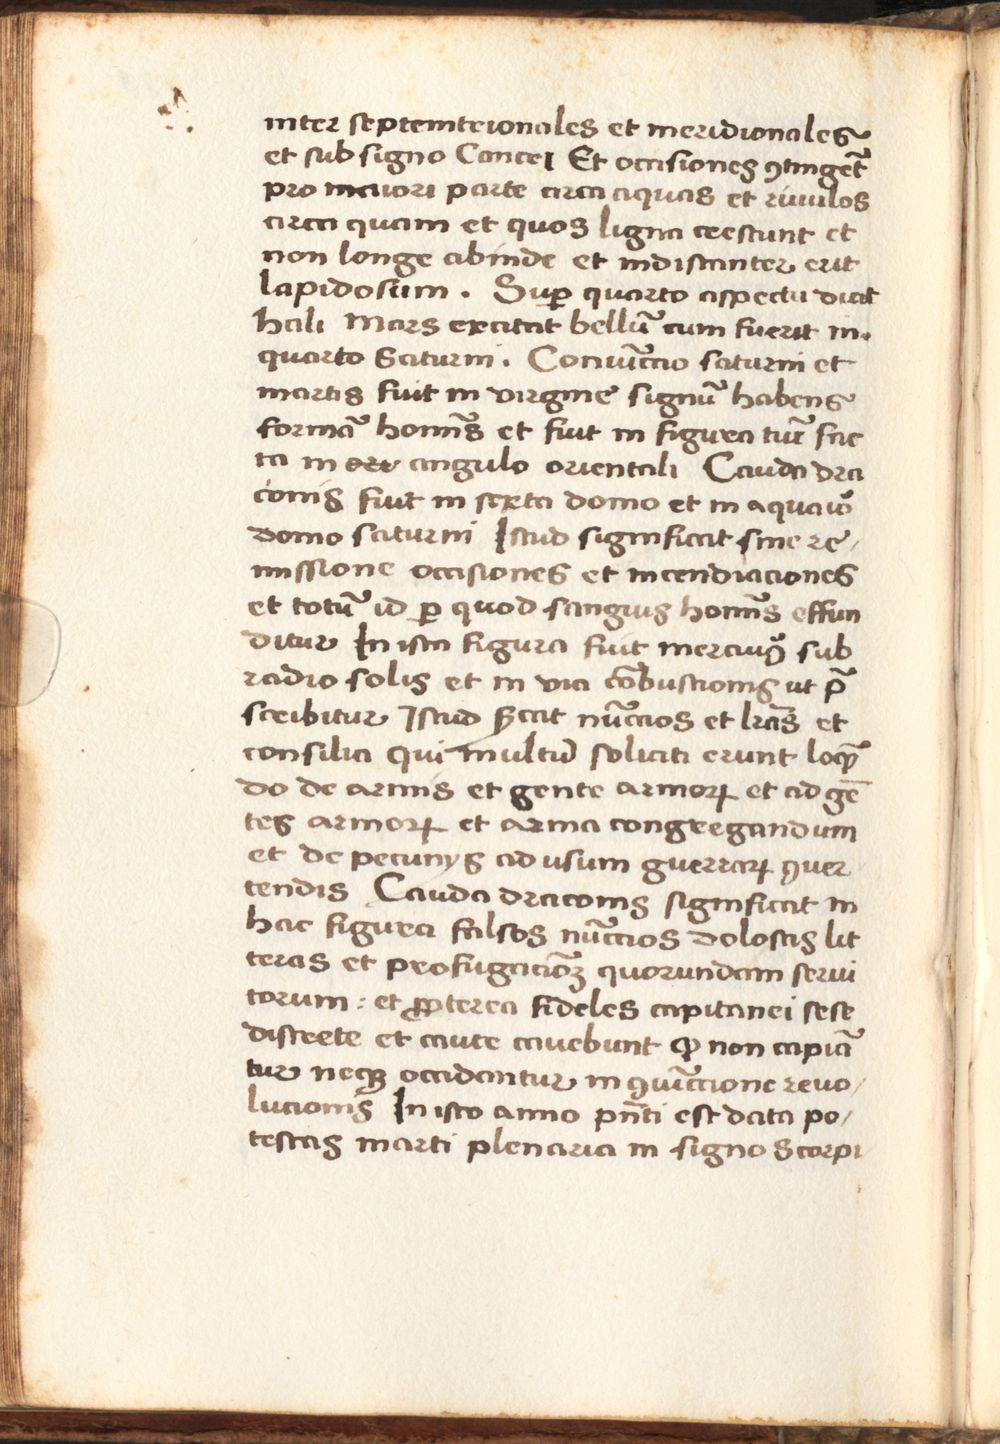 inter septemtrionales et meridionales
et sub signo Cancri Et occisiones ꝯtinget̃
pro maiori parte circa aquas et riuulos
circa quam et quos ligna crescunt et
non longe abinde et indistanter erit
lapidosum . Suꝑ quarto aspectu dicit
hali Mars excitat bellũ cum fuerit in
quarto Saturni . Coniũccio saturni et
martis fuit in virgine signũ habens
formã homĩs et fuit in figura tũc fac
ta in angulo orientali Cauda dra
conis fuit in sexta domo et in aquario
domo saturni Istud significat sine re-
missione occisiones et incendiaciones
et totũ id ꝑ quod sanguis homĩs effun
ditur In ista figura fuit mercuriꝰ sub
radio solis et in via cõbustionis ut p̃
scribitur Istud nũccios et lr̃as et
consilia qui multũ soliciti erunt loqñ
do de armis et gente armoꝝ et ad gẽ
tes armoꝝ et arma congregandum
et de pecunijs ad usum guerraꝝ ꝯuer
tendis Cauda draconis significat in
hac figura falsos nũccios dolosas lit
teras et profugaciõꝫ quorundam serui
torum : et ꝓpterea fideles capitanei sese
discrete et caute cauebunt ꝙ non capiã
tur neqꝫ occidantur in ꝯiũccione reuo-
lucionis In isto anno pñti est data po-
testas marti plenaria in signo Scorpi